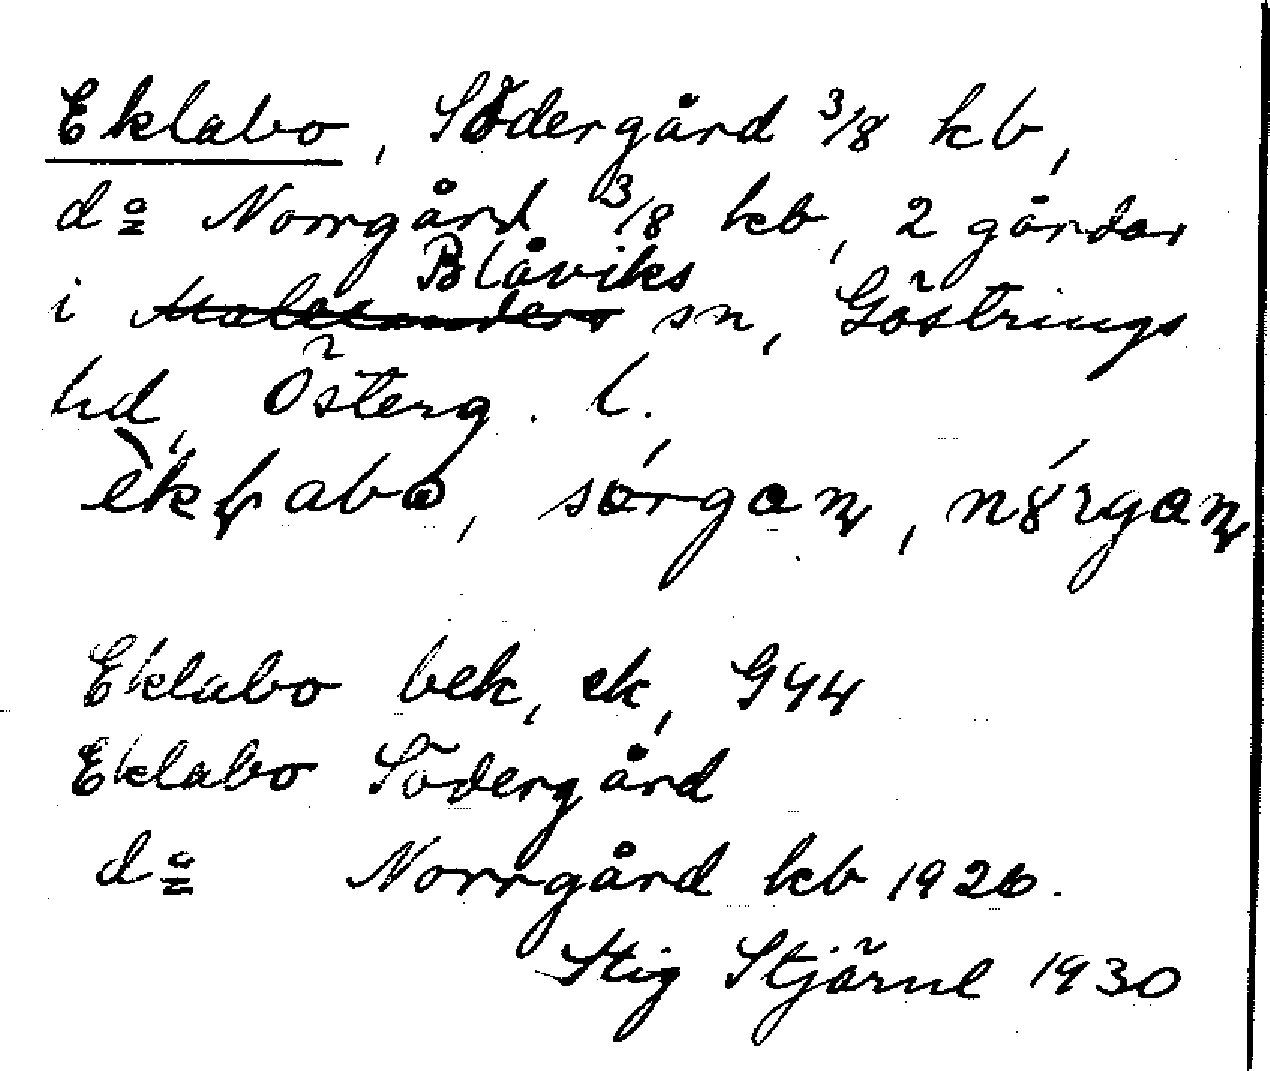 Eklabo, Södergård 3/8 kb,
do Norrgård 3/8 kb, 2 gårdar
i Malexanders Blåviks sn, Göstrings
hd, Österg. l.
Eklabo bek, ek, G44
Eklabo Södergård
do Norrgård kb 1926.
Stig Stjärne 1930